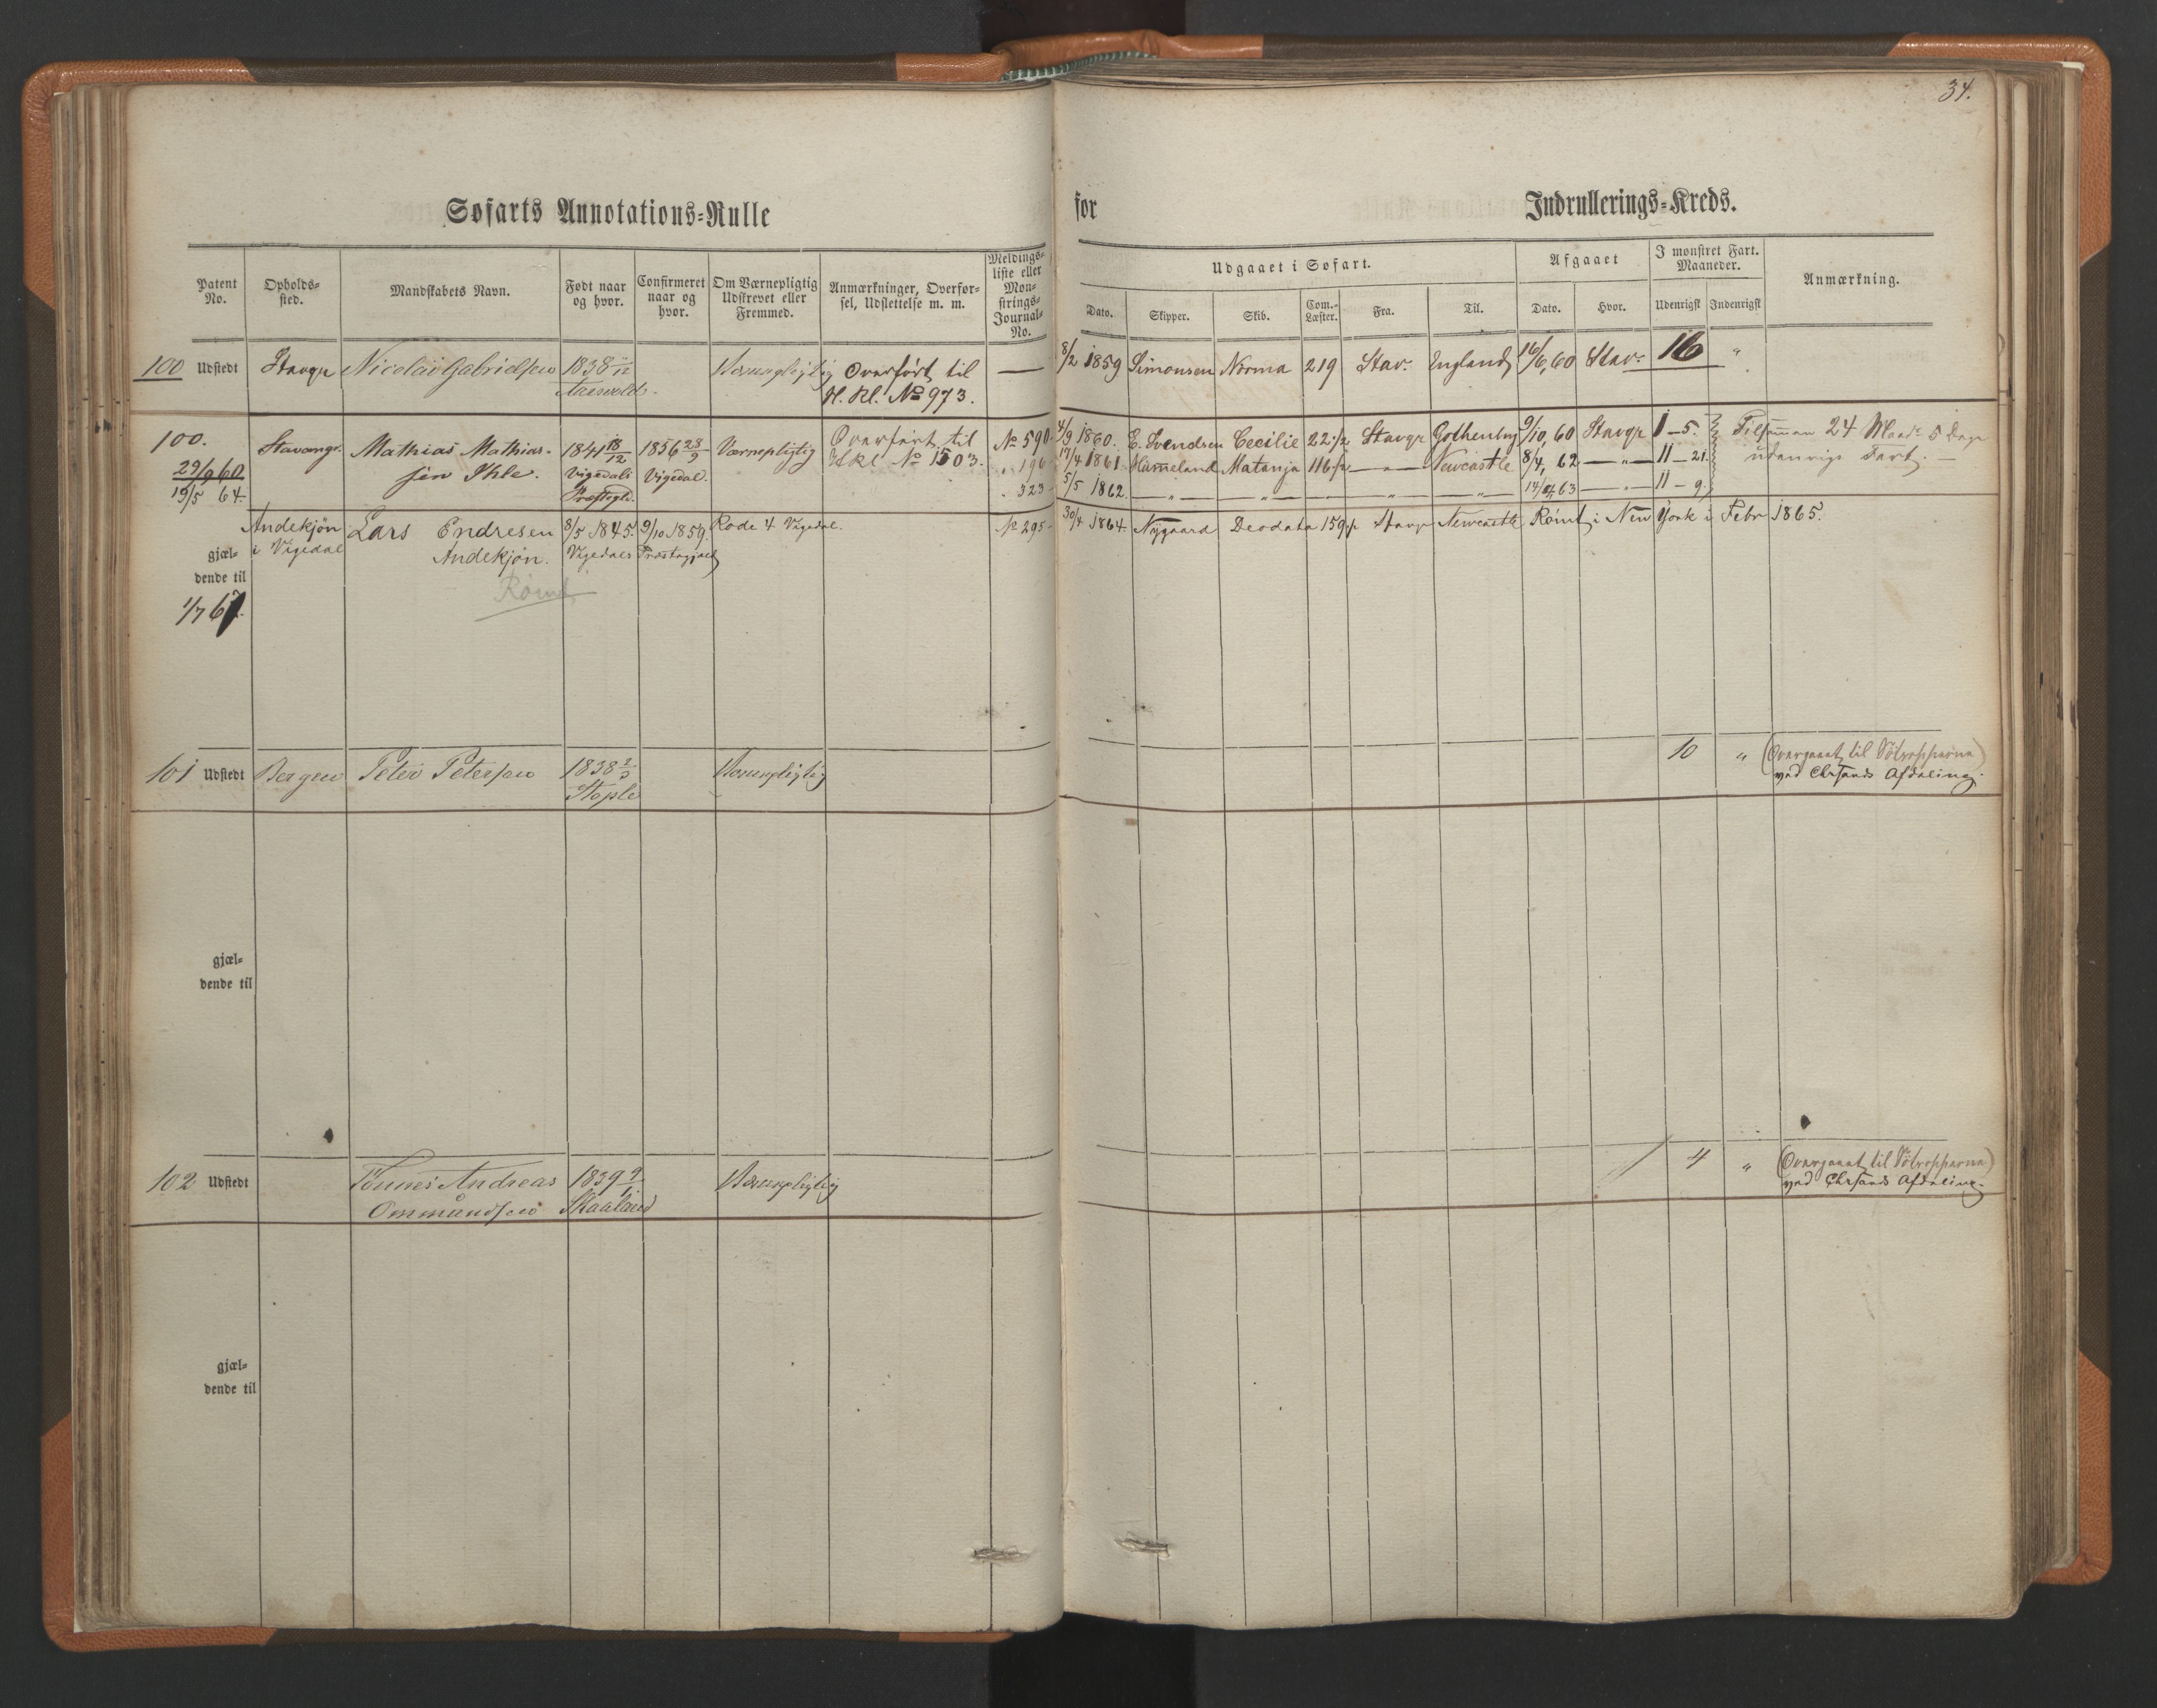 34.
Søfarts Annotations=Rulle
for Indrullerings=Kreds.
Patent No. Opholds=sted. Mandskabets Navn. Født naar og hvor. Confirmeret naar og hvor. Om Værnepligtig Udskrevet eller Fremmed. Anmærkninger, Overførsel, Udslettelse m. m. Meldings=liste eller Mønstrings=Journal=No.
Udgaaet i Søfart. Afgaaet I mønstret Fart. Maaneder. Anmærkning.
Dato. Skipper. Skib. Com.=Læster. Fra. Til. Dato. Hvor. Udenrigsk Indenrigsk
100 Udstedt Stavgr Nicolai Gabrielsen 1838 Værnepligtig Overført til — 8/2 1859 Simonsen Norma 219 Stav: England 16/6, 60 Stav: 16 "
H. Kl. No 973.
100. Stavangr. Mathias Mathias- 1841 18/12 1856 28/9 Værnepligtig Overført til No 590. 4/9 1860. E. Svendsen Cecilie 22 1/2 Stavgr Gothenbug 9/10, 60 Stavgr 1 — 5. Tilsamman 24 Maadr 5 Dage
29/9 60 sen Ihle. Vigedals Vigedal. Hkl No 1503. " 196 17/4 1861 Hümeland Matanja 116 1/2 — " — Newcastle 8/4, 62 — " — 11 — 21. udenrigs Fart. —
19/5 64. Præstegd. " 323 5/5 1862. — " — — " — — — " — — " — 14/4 63 — " — 11 — 9.
Andekjön Lars Endresen 8/5 1845. 9/10 1859. Rode 4 Vigedal. No 295 30/4 1864. Nygaard Deodata 159 1/2 Stavgr Newcastle Römt i New York i Febr 1865.
i Vigedal Andekjön. Vigedals Præstegjæld
gjæl=
dende til
Römt
1/7 67.
101 Udstedt Bergen Peter Petersen 1838 2/3 Værnepligtig 10 " (Overgaaet til Søtropperne)
Stople ved Chrsands Afdeling.
gjæl=
dende til
102 Udstedt Tönnes Andreas 1839 9/1 Værnepligtig 4 " (Overgaaet til Søtropperne)
Ommundsen Skaaland ved Chrsands Afdeling.
gjæl=
dende til